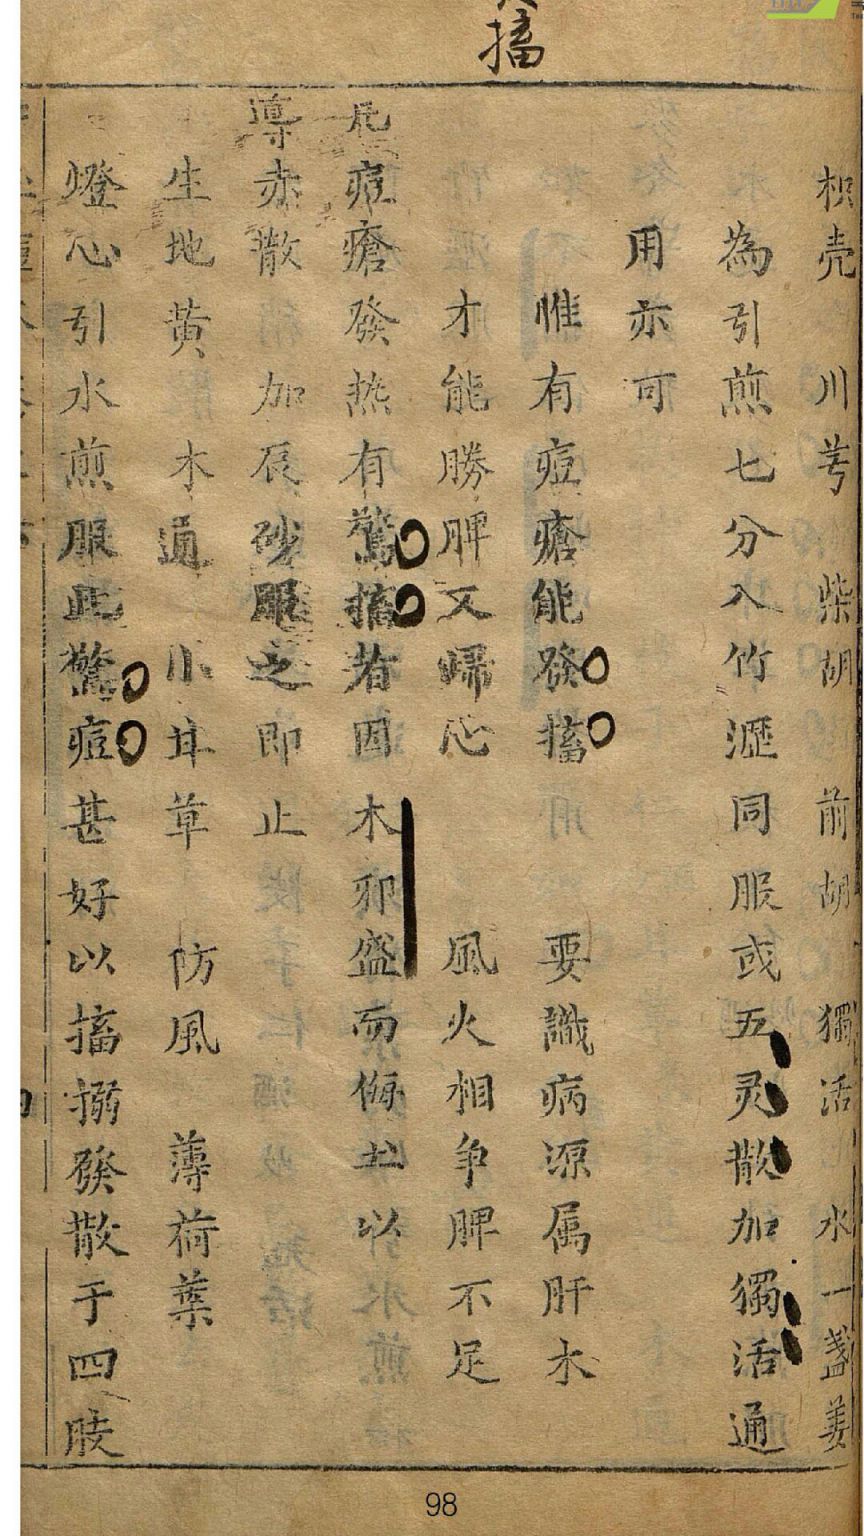 搐
枳壳 川芎 柴胡 前胡 獨活 水一盞姜
為引煎七分入竹瀝同服或五灵散加獨活通
用亦可
惟有痘瘡能發搐 要識病源属肝木
才能勝脾又歸心 風火相争脾不足
凡痘瘡發热有驚搐者因木邪盛而侮土以
導赤散 加辰砂服之即止
生地黄 木通 小甘草 防風 薄荷葉
燈心引水煎服此驚痘甚好以搐搦發散于四肢
98